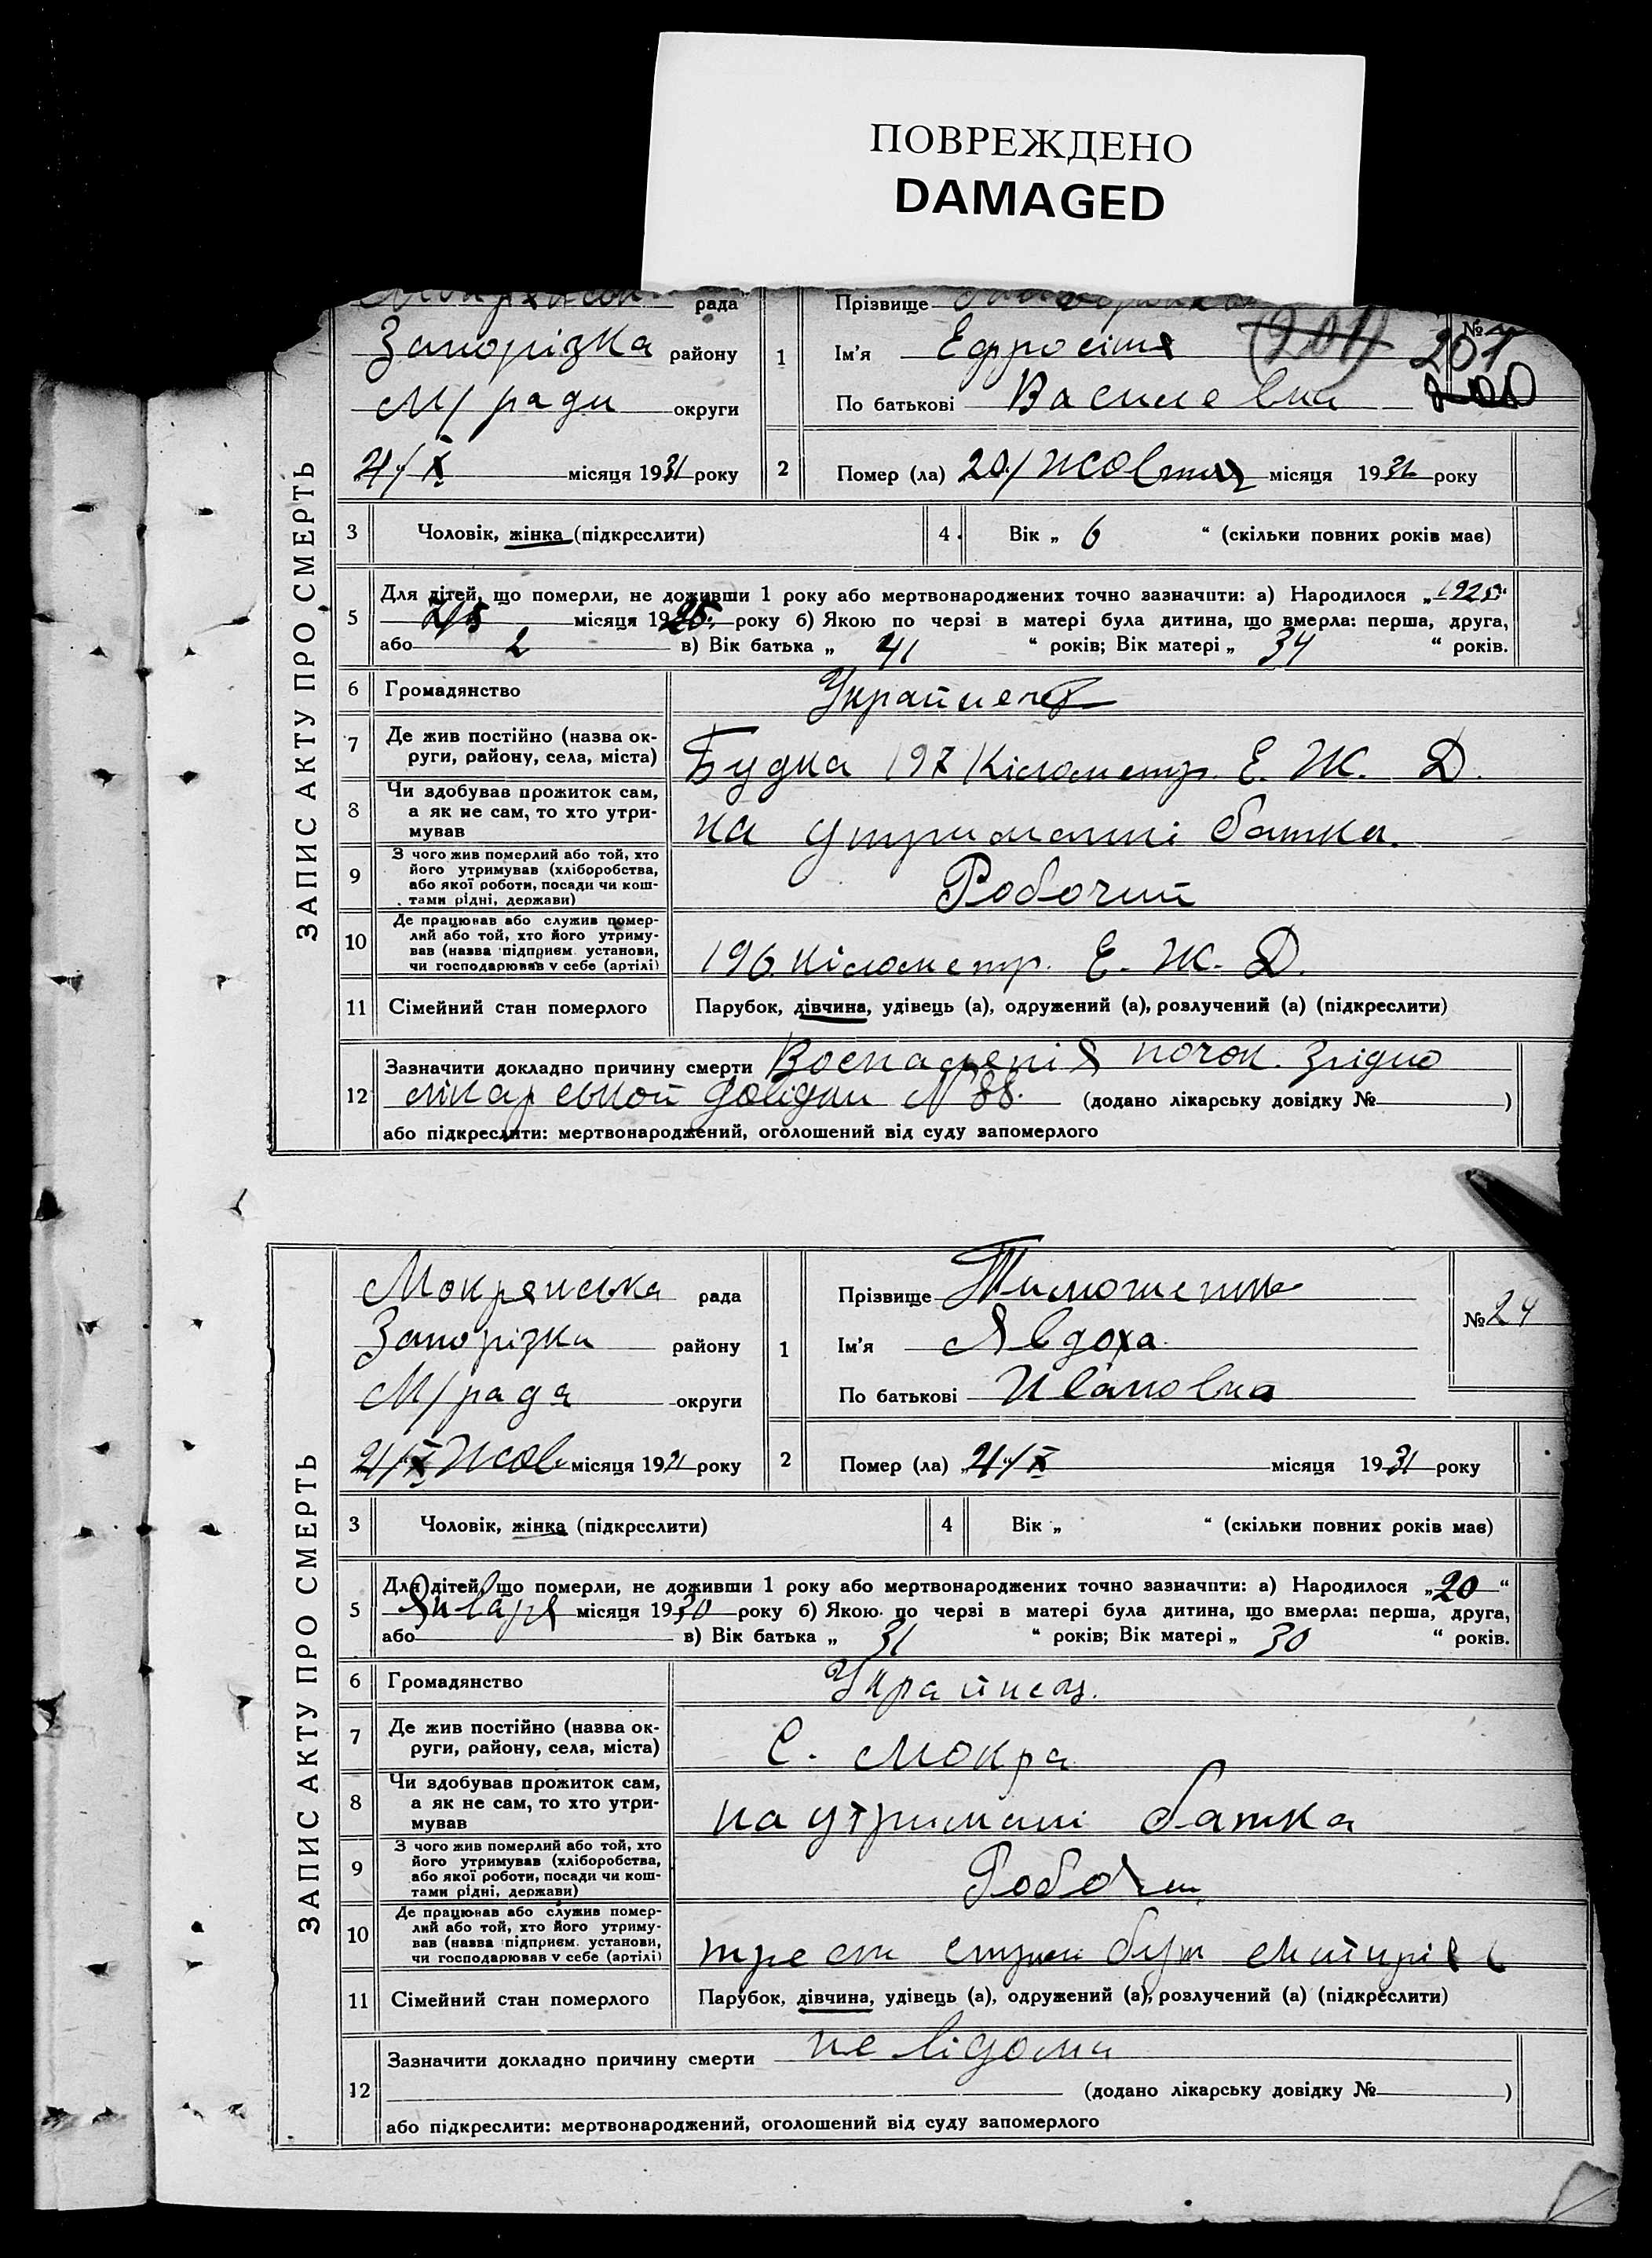 ПОВРЕЖДЕНО
DAMAGED
ЗАПИС АКТУ ПРО СМЕРТЬ
рада
Запорізка району
М/ради округи
21/X місяця 1931 року
1 Прізвище
Ім'я Ефросіня
По батькові Василевна
(201)
№
201
200
2 Помер (ла) 20/Жовтня місяця 1931 року
3 Чоловік, жінка (підкреслити) 4 Вік „ 6 “ (скільки повних років має)
5 Для дітей, що померли, не доживши 1 року або мертвонароджених точно зазначити: а) Народилося „1925“
місяця 1925 року б) Якою по черзі в матері була дитина, що вмерла: перша, друга,
або 2 в) Вік батька „ 41 “ років; Вік матері „ 34 “ років.
6 Громадянство
7 Де жив постійно (назва ок-
руги, району, села, міста) Будка 197 Кілометр. Е. Ж. Д.
8 Чи здобував прожиток сам,
а як не сам, то хто утри-
мував на утриманні батка.
9 З чого жив померлий або той, хто
його утримував (хліборобства,
або якої роботи, посади чи кош-
тами рідні, держави) Робочий
10 Де працював або служив помер-
лий або той, хто його утриму-
вав (назва підприєм. установи,
чи господарював у себе (артілі) 196 кілометр. Е. Ж. Д.
11 Сімейний стан померлого Парубок, дівчина, удівець (а), одружений (а), розлучений (а) (підкреслити)
12 Зазначити докладно причину смерти Воспаленія почок. Згідно
лікарськой довідки N 88. (додано лікарську довідку № )
або підкреслити: мертвонароджений, оголошений від суду запомерлого
ЗАПИС АКТУ ПРО СМЕРТЬ
Мокрянська рада
Запорізка району
М/рада округи
21/X Жов місяця 1931 року
1 Прізвище Тимошенко
Ім'я Явдоха
По батькові Ивановна
№ 24
2 Помер (ла) 21/X місяця 1931 року
3 Чоловік, жінка (підкреслити) 4 Вік „ “ (скільки повних років має)
5 Для дітей, що померли, не доживши 1 року або мертвонароджених точно зазначити: а) Народилося „20“
Января місяця 1930 року б) Якою по черзі в матері була дитина, що вмерла: перша, друга,
або в) Вік батька „ 31 “ років; Вік матері „ 30 “ років.
6 Громадянство Українец.
7 Де жив постійно (назва ок-
руги, району, села, міста) С. Мокра
8 Чи здобував прожиток сам,
а як не сам, то хто утри-
мував на утримані батка
9 З чого жив померлий або той, хто
його утримував (хліборобства,
або якої роботи, посади чи кош-
тами рідні, держави)
10 Де працював або служив помер-
лий або той, хто його утриму-
вав (назва підприєм. установи,
чи господарював у себе (артілі) трест
11 Сімейний стан померлого Парубок, дівчина, удівець (а), одружений (а), розлучений (а) (підкреслити)
12 Зазначити докладно причину смерти не відома
(додано лікарську довідку № )
або підкреслити: мертвонароджений, оголошений від суду запомерлого